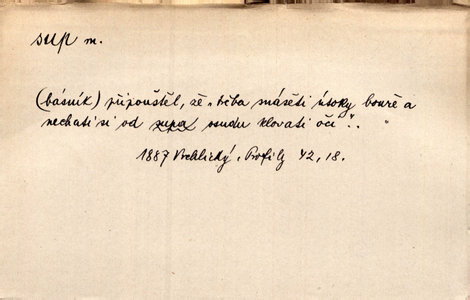 sup m.
(básník) připouštěl, že „třeba snášeti útoky bouře a
nechati si od supa osudu klovati oči“..
1887 Vrchlický, Profily 42, 18.